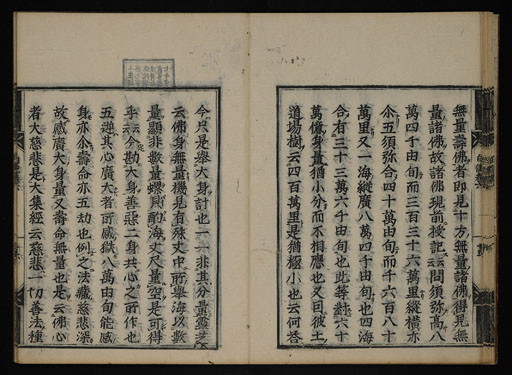 無量壽佛者即見十方無量諸佛得見無
量諸佛故諸佛現前授記云問須弥高八
萬四千由旬而三百三十六萬里縱横亦
尒五須弥合四十萬由旬而千六百八十
萬里又一海縱廣八萬四千由旬也四海
合有三十三萬六千由旬也此等對六十
萬億身量猶小分而不相應也又回彼土
道場樹云四百萬里是猶極小也云何答
今只是舉大身計也一一非其分量靈芝
云佛身無量機見有殊丈中所舉海以數
量顯非數量螺貝酌海丈尺量空是可得
乎云今勘大身善惡二身共心之所作也
五逆其心廣大者而感獄八萬由旬能感
身亦尒壽命亦五劫也例之法藏慈悲深
故感廣大身量又壽命無量也是云佛心
者大慈悲是大集經云慈悲一切善法種